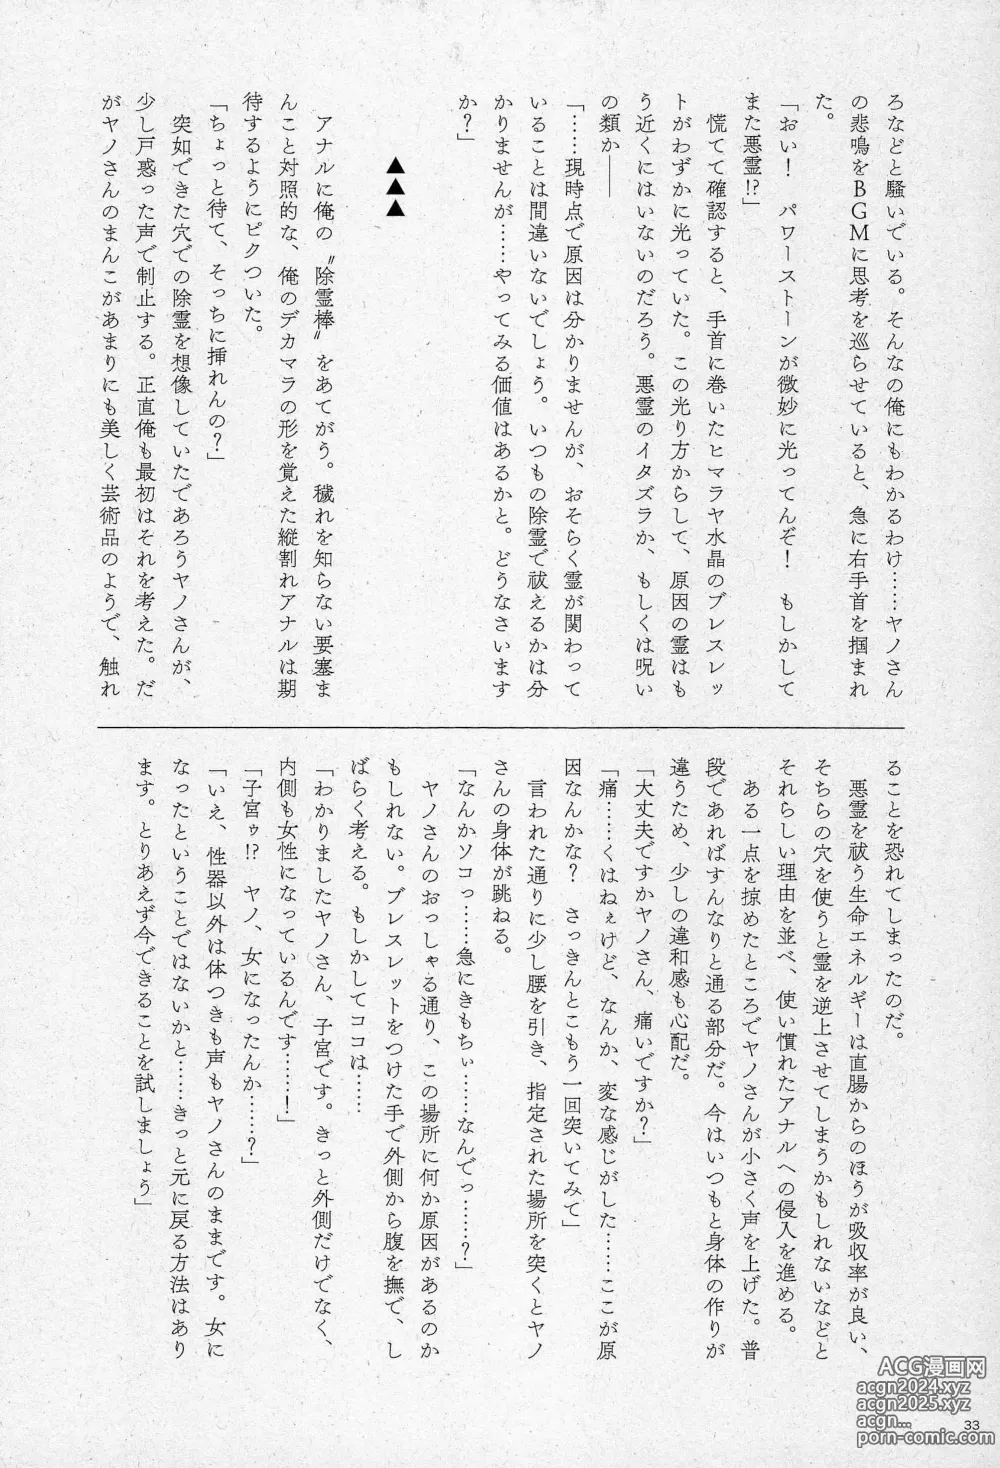 ろなどと騒いでいる。そんなの俺にもわかるわけ……ヤノさん
の悲鳴をBGMに思考を巡らせていると、急に右手首を掴まれ
た。
「おい！　パワーストーンが微妙に光ってんぞ！　もしかして
また悪霊!?」
慌てて確認すると、手首に巻いたヒマラヤ水晶のブレスレッ
トがわずかに光っていた。この光り方からして、原因の霊はも
う近くにはいないのだろう。悪霊のイタズラか、もしくは呪い
の類か――
「……現時点で原因は分かりませんが、おそらく霊が関わって
いることは間違いないでしょう。いつもの除霊で祓えるかは分
かりませんが……やってみる価値はあるかと。どうなさいます
か？」
▲▲▲
アナルに俺の〝除霊棒〟をあてがう。穢れを知らない要塞ま
んこと対照的な、俺のデカマラの形を覚えた縦割れアナルは期
待するようにピクついた。
「ちょっと待て、そっちに挿れんの？」
突如できた穴での除霊を想像していたであろうヤノさんが、
少し戸惑った声で制止する。正直俺も最初はそれを考えた。だ
がヤノさんのまんこがあまりにも美しく芸術品のようで、触れ
ることを恐れてしまったのだ。
悪霊を祓う生命エネルギーは直腸からのほうが吸収率が良い、
そちらの穴を使うと霊を逆上させてしまうかもしれないなどと
それらしい理由を並べ、使い慣れたアナルへの侵入を進める。
ある一点を掠めたところでヤノさんが小さく声を上げた。普
段であればすんなりと通る部分だ。今はいつもと身体の作りが
違うため、少しの違和感も心配だ。
「大丈夫ですかヤノさん、痛いですか？」
「痛……くはねぇけど、なんか、変な感じがした……ここが原
因なんかな？　さっきんとこもう一回突いてみて」
言われた通りに少し腰を引き、指定された場所を突くとヤノ
さんの身体が跳ねる。
「なんかソコっ……急にきもちぃ……なんでっ……？」
ヤノさんのおっしゃる通り、この場所に何か原因があるのか
もしれない。ブレスレットをつけた手で外側から腹を撫で、し
ばらく考える。もしかしてココは……
「わかりましたヤノさん、子宮です。きっと外側だけでなく、
内側も女性になっているんです……！」
「子宮ゥ!?　ヤノ、女になったんか……？」
「いえ、性器以外は体つきも声もヤノさんのままです。女に
なったということではないかと……きっと元に戻る方法はあり
ます。とりあえず今できることを試しましょう」
ACG漫画网
acgn2024.xyz
acgn2025.xyz
acgn...
porn-comic.com
33